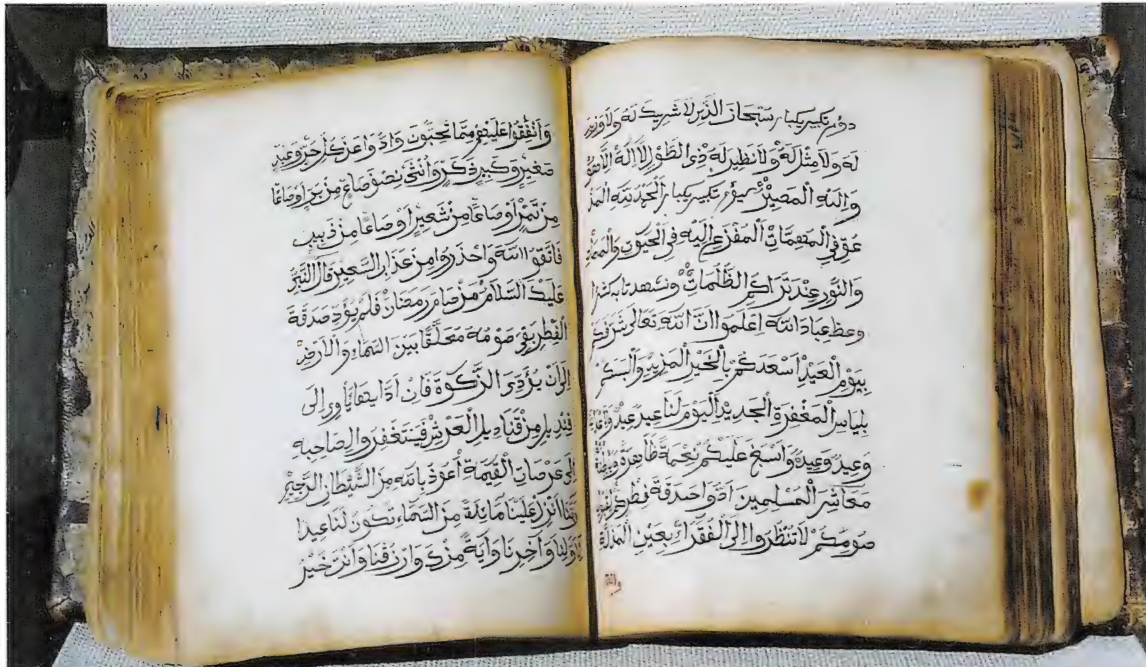 دوم تكبير كبار سبحان الذي لا شريك له ولا وزير
له ولا مثل له ولا نظير له ذي الطول لا اله الا هو
واليه المصير سيوم تكبير كبار الحمد لله المد
عو في المهمات المفزع اليه في الحيوت والممات
والنور عند تراكم الظلمات ونشهد
وعظ عباد الله اعلموا ان الله تعالى شرفكم
بيوم العيد اسعدكم بالخير المزيد والبسكم
بلباس المغفرة الجديد اليوم لنا عيد عيد
وعيد وعيد واسبغ عليكم نعمة ظاهرة وباطنة
معاشر المسلمين ادوا صدقة فطركم
صومكم لا تنظروا الى الفقراء بعين المذلة
وانفقوا عليهم مما تحبون وادوا عن كل حر وعبد
صغير وكبير ذكر وانثى نصف صاع من بر او صاعا
من تمر او صاعا من شعير او صاعا من ذبيب
فاتقوا الله واحذروا من عذاب السعير قال النبي
عليه السلام من صام رمضان فلم يؤد صدقة
الفطر بقي صومه معلقا بين السماء والارض
الى ان يؤدى الزكوة فان ادا يقايأوى الى
قنديل من قناديل العرش فيستغفر والصاحبه
الى عرصات القيمة اعوذ بالله من الشيطان الرجيم
ربنا انزل علينا مائدة من السماء تكون لنا عيدا
لاولنا وآخرنا وآية منك وارزقنا وانت خير